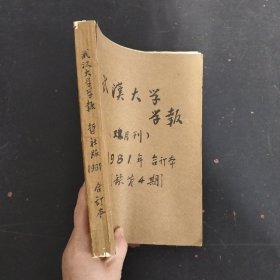 武汉大学学报 哲社版 1981 合订本
武漢大学
学报
双月刊)
1981年 合訂本
缺第4期